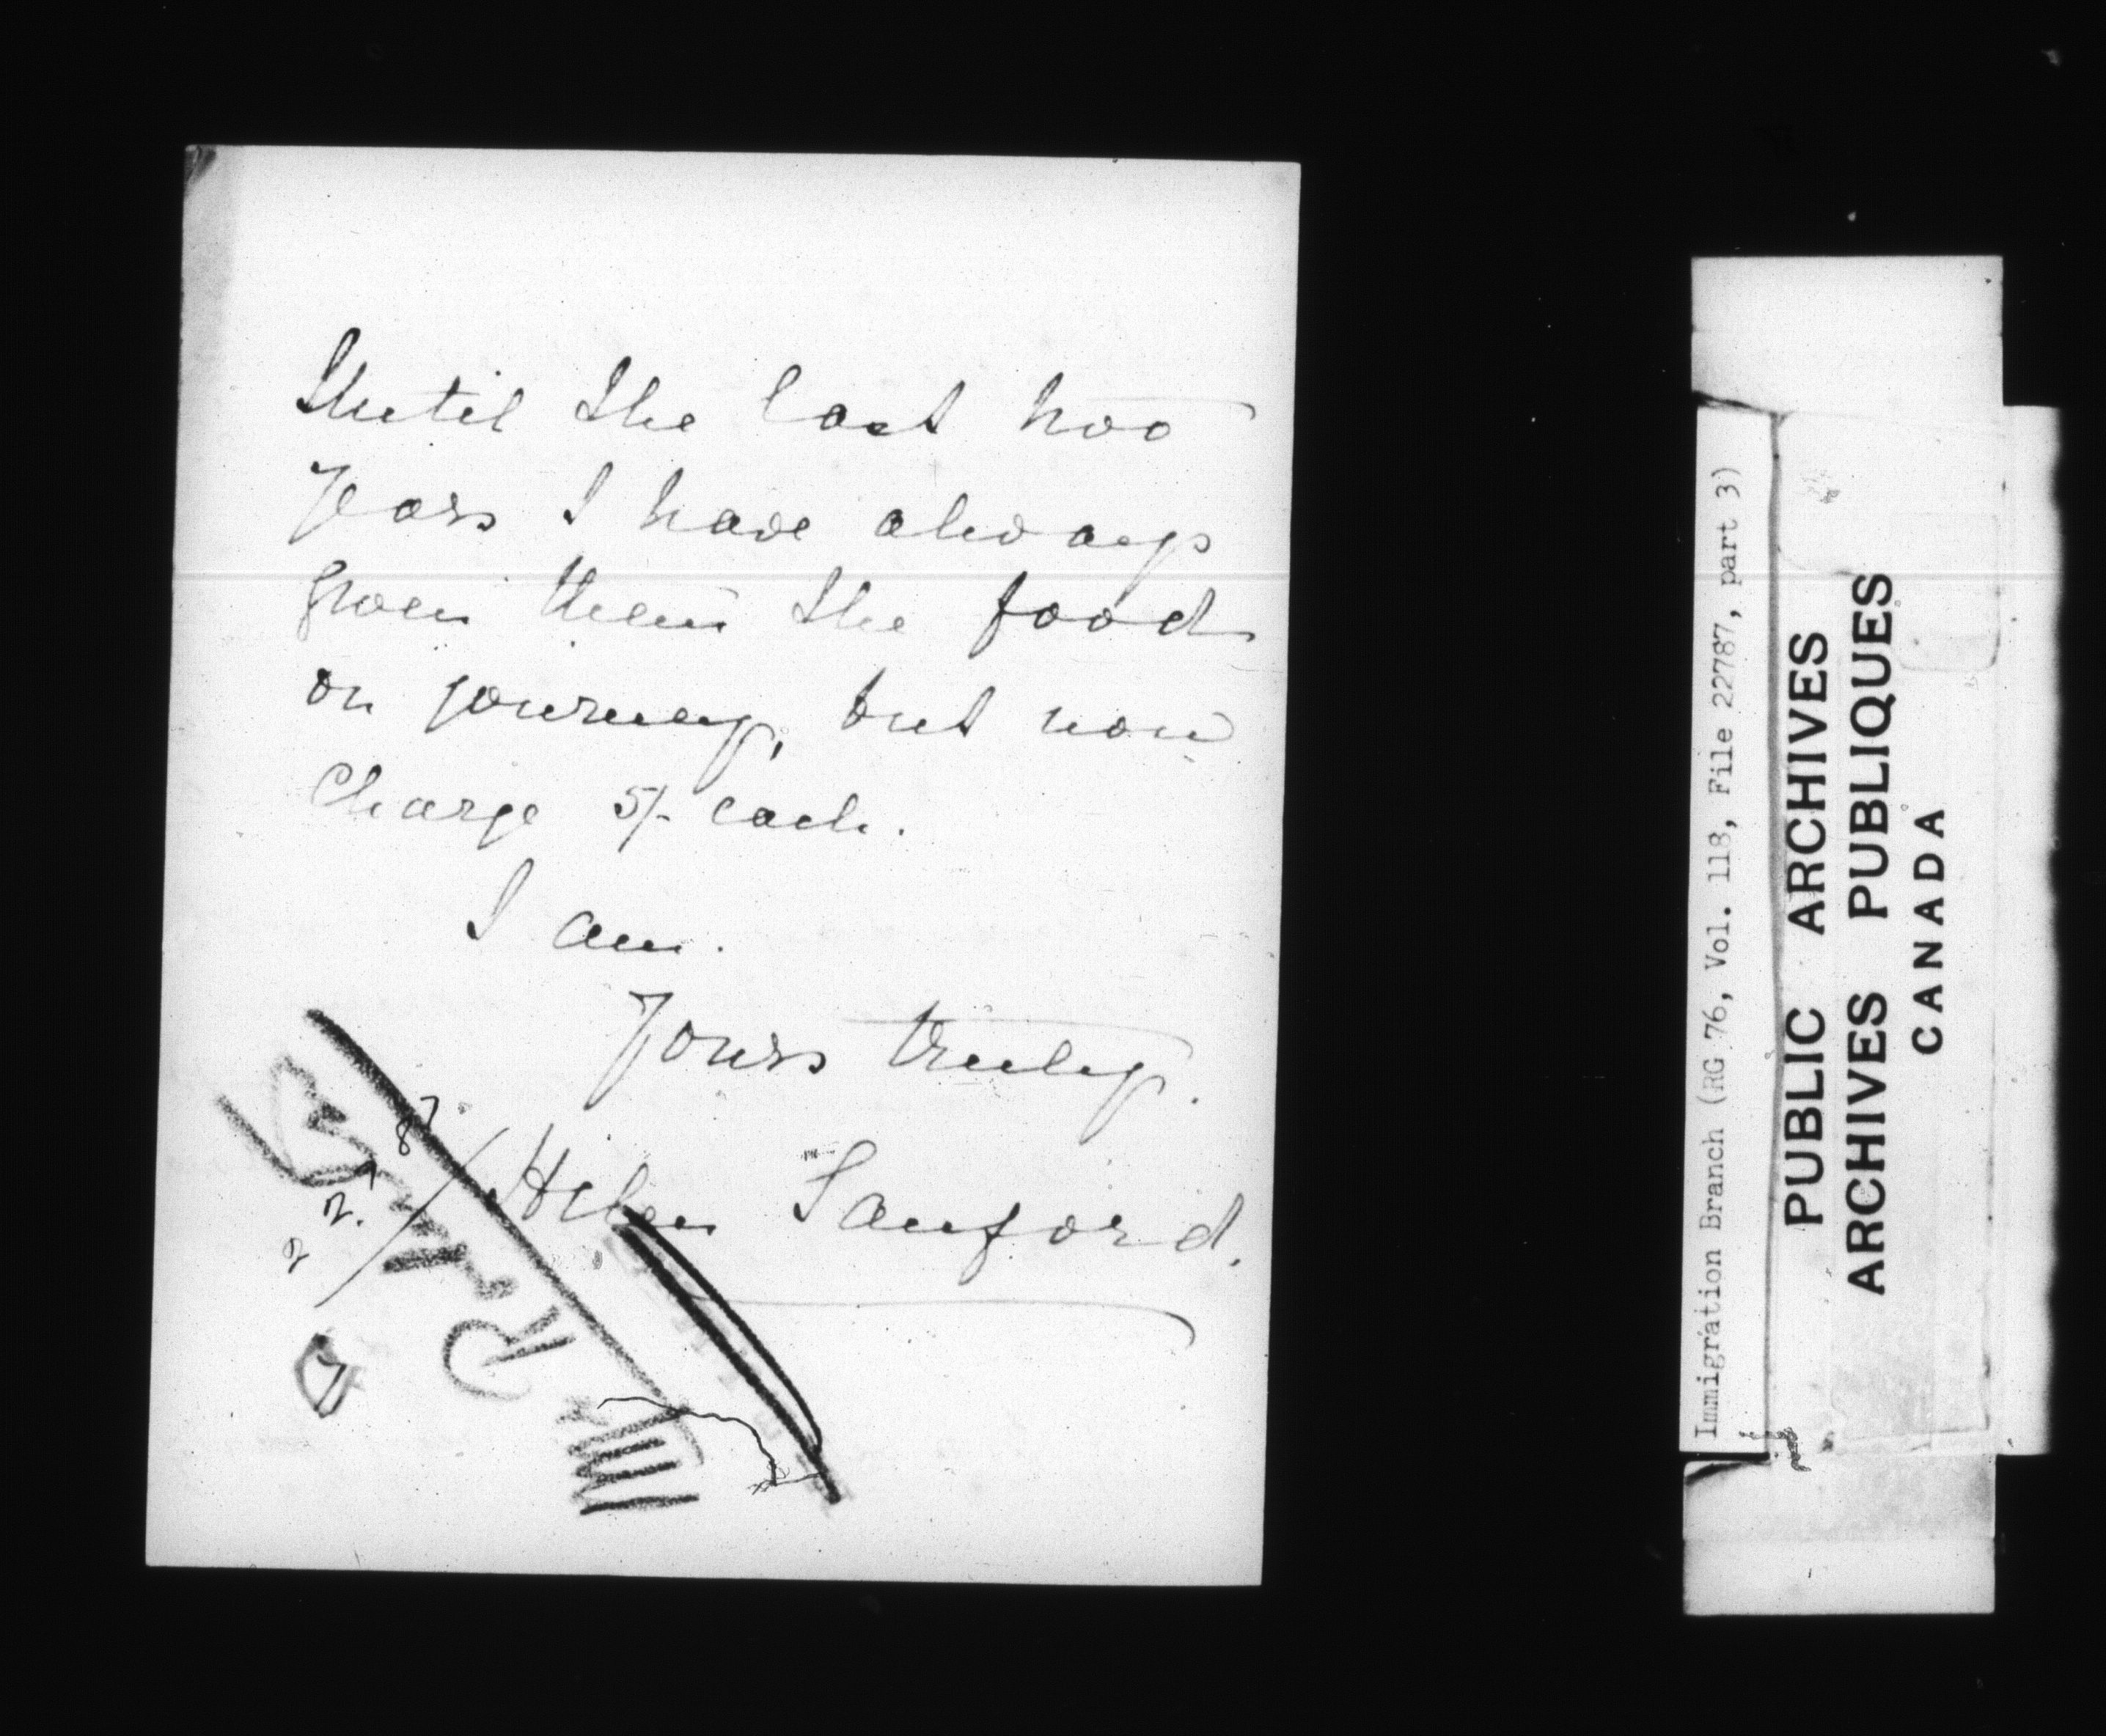 Until the last two
Years I have always
given them the food
on journey, but now
Charge 5/- each.
I am.
Yours truly.
Helen Sanford.
Immigration Branch (RG 76, Vol. 118, File 22787, part 3)
PUBLIC ARCHIVES
ARCHIVES PUBLIQUES
CANADA